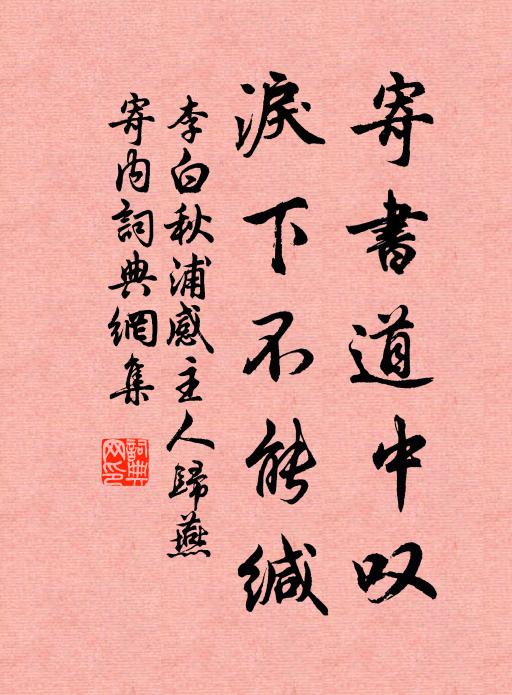 寄書道中叹
淚下不能缄
李白秋浦感主人歸燕
寄内詞典網集
詞典網印